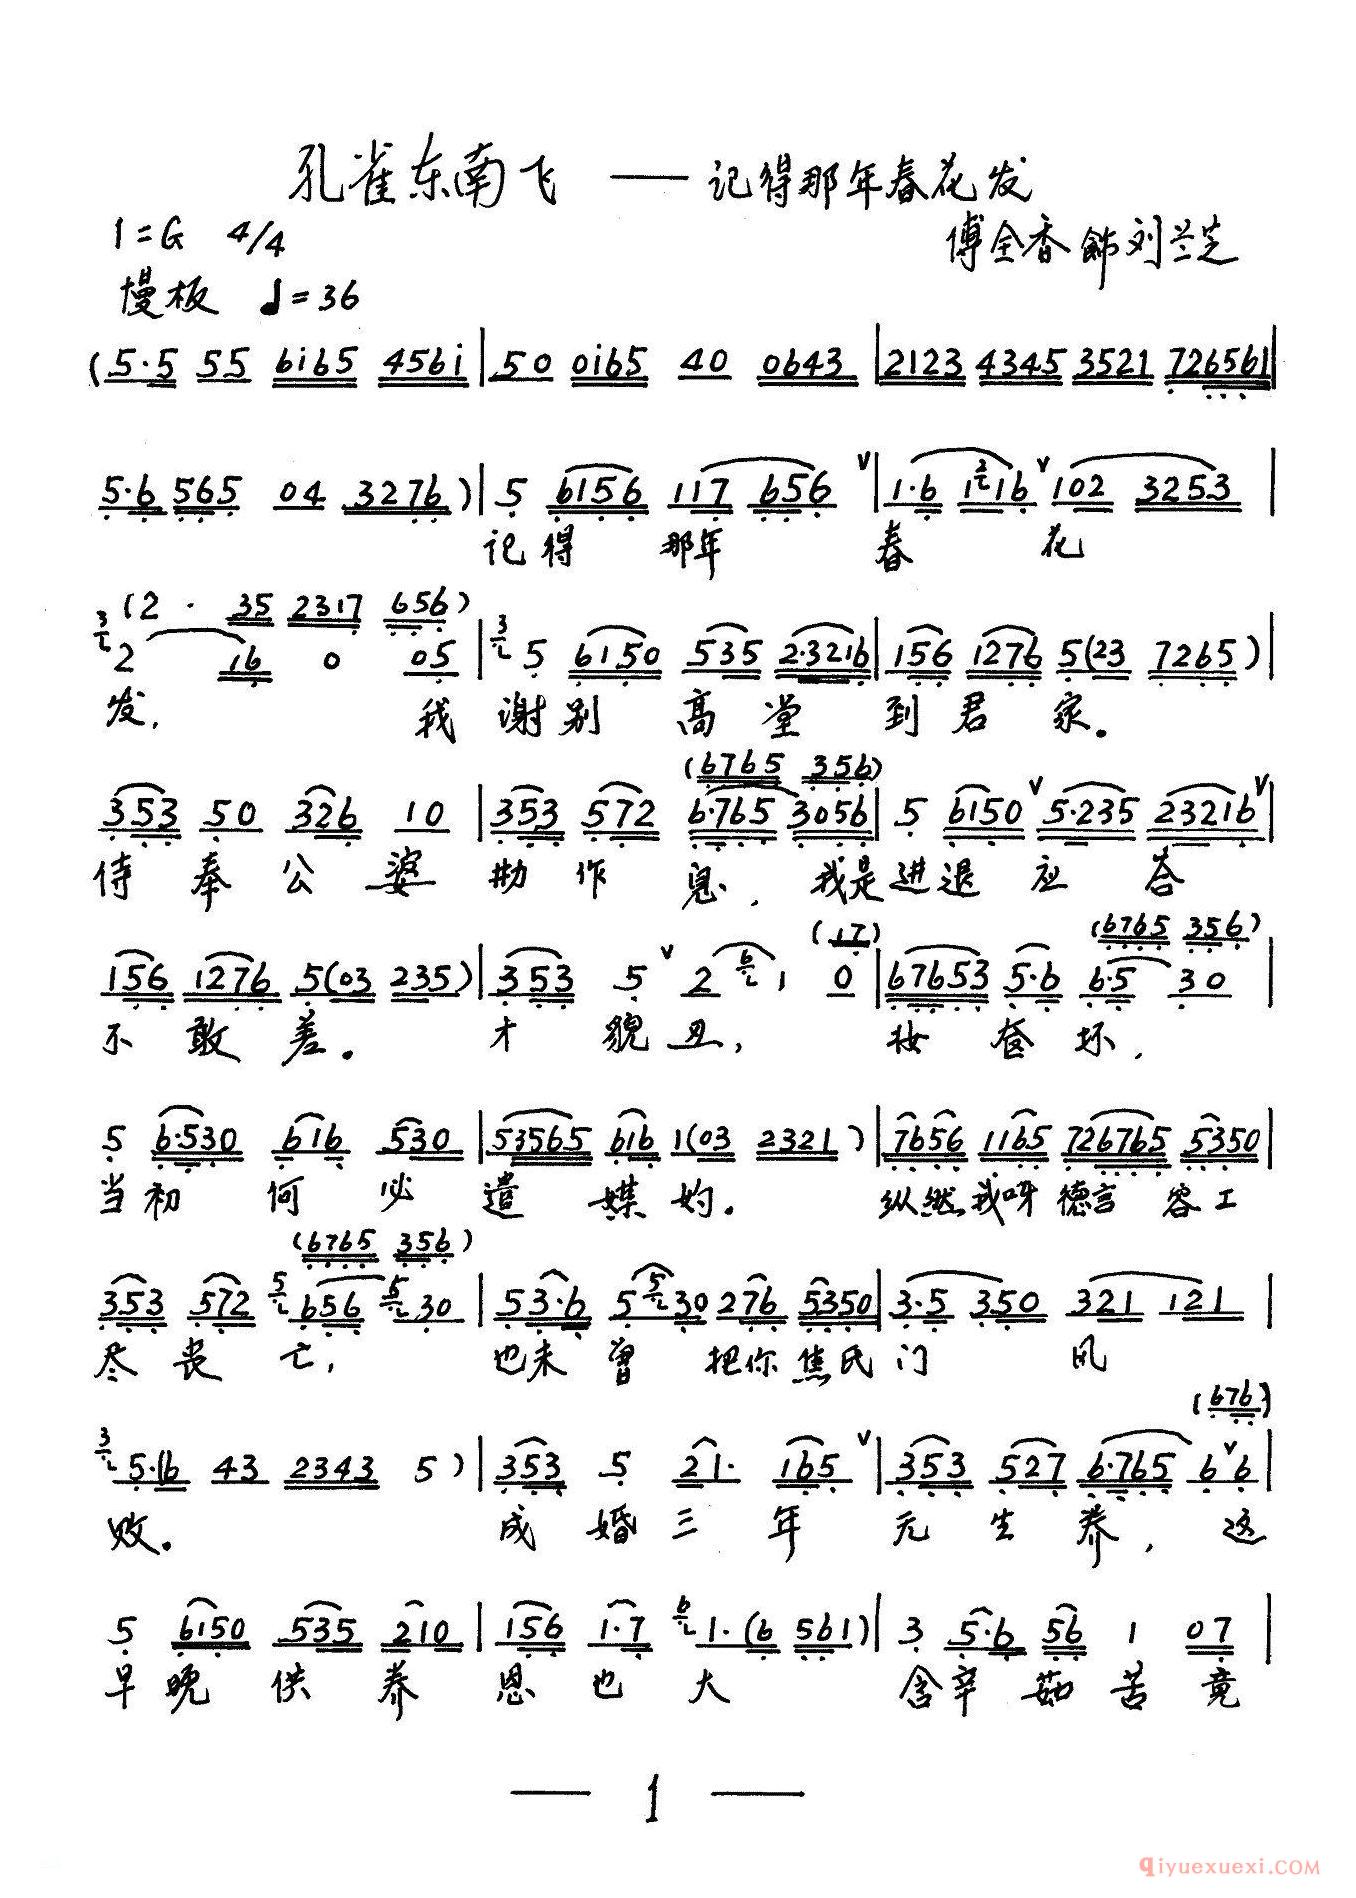 孔雀东南飞 —— 记得那年春花发
1=G 4/4
傅全香 饰 刘兰芝
慢板 ♩=36
(5·5 55 6i65 456i | 50 0i65 40 0643 | 2123 4345 3521 726561 |
5·6 565 04 3276) | 5 6156 117 656 ∨| 1·6 1216 ∨102 3253 |
记得 那年 春 花
(2 · 35 2317 656)
2 16 0 05 | 5 6150 535 2·3216 | 156 1276 5(23 7265) |
发, 我 谢别 高 堂 到 君 家。
(6765 356)
353 50 326 10 | 353 572 6·765 3056 | 5 6150 ∨5·235 23216 ∨|
侍 奉 公 婆 勤 作 息, 我是 进退 应 答
(17) (6765 356)
156 1276 5(03 235) | 353 5 ∨2 6 1 0 | 67653 5·6 6·5 30 |
不 敢 差。 才 貌 丑, 妆 奁 坏,
5 6·530 616 530 | 53565 616 1(03 2321) | 7656 1165 726765 5350 |
当初 何 必 遣 媒 妁。 纵然我呀 德言 容 工
(6765 356)
353 572 5 656 5 30 | 53·6 5 5 30 276 5350 | 3·5 350 321 121 |
尽 丧 亡, 也未 曾 把你 焦氏 门 风
(676)
3 5·(6 43 2343 5) | 353 5 21· 165 ∨| 353 527 6·765 6∨6 |
败。 成 婚 三 年 元 生 养, 这
5 6150 535 210 | 156 1·7 6 1·(6 561) | 3 5·6 56 1 07 |
早 晚 供 养 恩 也 大 含辛 茹 苦 竟
— 1 —
qiyuexuexi.COM